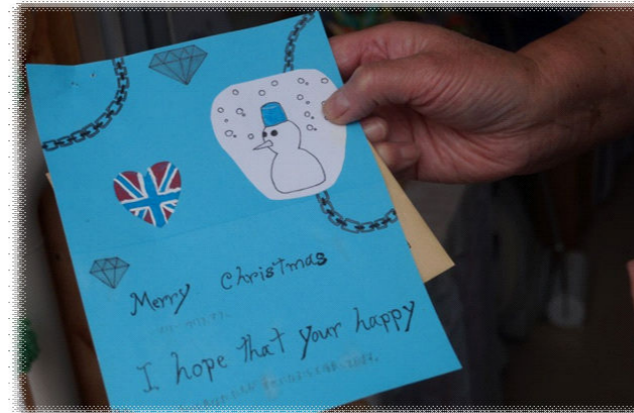 Merry Christmas
I hope that your happy